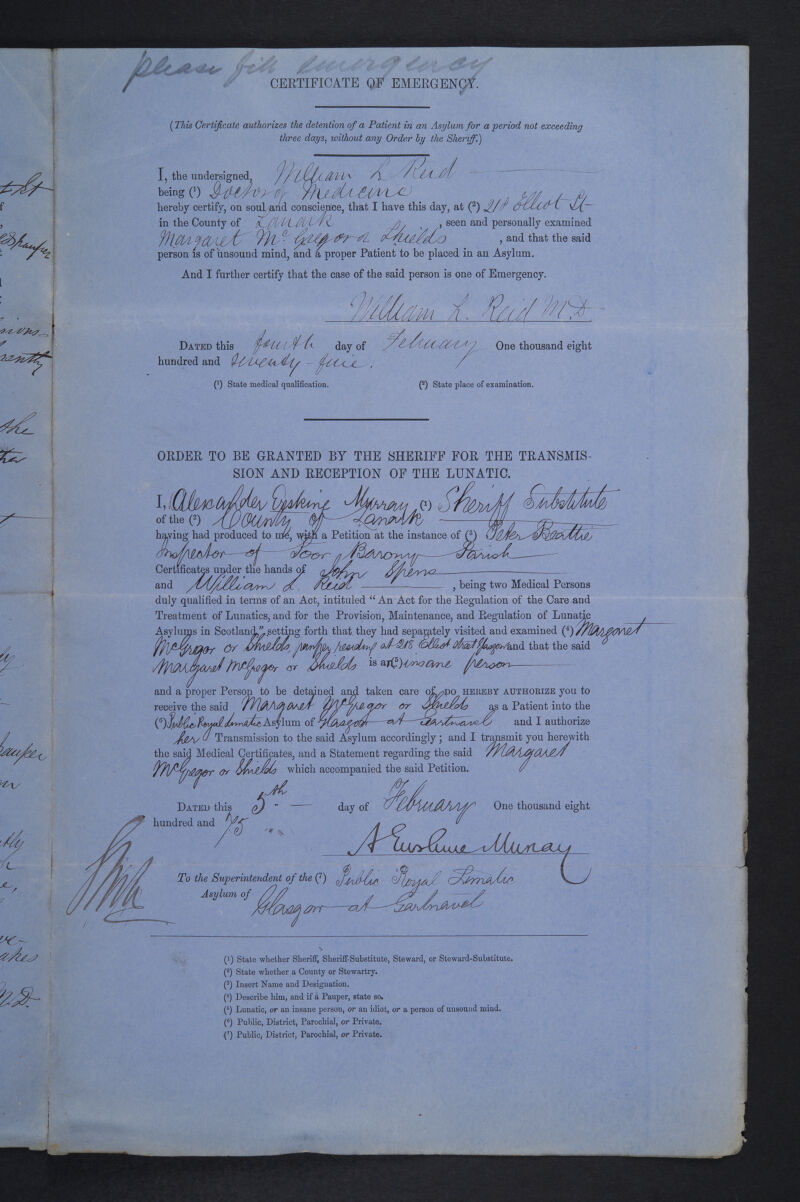 please fill emergency
CERTIFICATE OF EMERGENCY.
(This Certificate authorizes the detention of a Patient in an Asylum for a period not exceeding
three days, without any Order by the Sheriff.)
I, the undersigned, William L Reid
being (¹) Doctor of Medicine
hereby certify, on soul and conscience, that I have this day, at (²) 218 Elliot St
in the County of Lanark, seen and personally examined
Margaret McGregor or Shields, and that the said
person is of unsound mind, and a proper Patient to be placed in an Asylum.
And I further certify that the case of the said person is one of Emergency.
William L. Reid M.D
DATED this fourth day of February One thousand eight
hundred and seventy-five.
(¹) State medical qualification. (²) State place of examination.
ORDER TO BE GRANTED BY THE SHERIFF FOR THE TRANSMIS-
SION AND RECEPTION OF THE LUNATIC.
I, Alexander Erskine Murray (¹) Sheriff Substitute
of the (²) County of Lanark
having had produced to me, with a Petition at the instance of (³) Peter Beattie
Inspector of Poor, Barony Parish
Certificates under the hands of John Spens
and William L. Reid, being two Medical Persons
duly qualified in terms of an Act, intituled "An Act for the Regulation of the Care and
Treatment of Lunatics, and for the Provision, Maintenance, and Regulation of Lunatic
Asylums in Scotland," setting forth that they had separately visited and examined (⁴) Margaret
McGregor or Shields, pauper, residing at 218 Elliot Street Glasgow and that the said
Margaret McGregor or Shields is an (⁵) insane person
and a proper Person to be detained and taken care of, DO HEREBY AUTHORIZE you to
receive the said Margaret McGregor or Shields as a Patient into the
(⁶) Public Royal Lunatic Asylum of Glasgow at Gartnavel and I authorize
her Transmission to the said Asylum accordingly; and I transmit you herewith
the said Medical Certificates, and a Statement regarding the said Margaret
McGregor or Shields which accompanied the said Petition.
DATED this 5th day of February One thousand eight
hundred and 75
A Erskine Murray
To the Superintendent of the (⁷) Public Royal Lunatic
Asylum of Glasgow at Gartnavel
(¹) State whether Sheriff, Sheriff-Substitute, Steward, or Steward-Substitute.
(²) State whether a County or Stewartry.
(³) Insert Name and Designation.
(⁴) Describe him, and if a Pauper, state so.
(⁵) Lunatic, or an insane person, or an idiot, or a person of unsound mind.
(⁶) Public, District, Parochial, or Private.
(⁷) Public, District, Parochial, or Private.